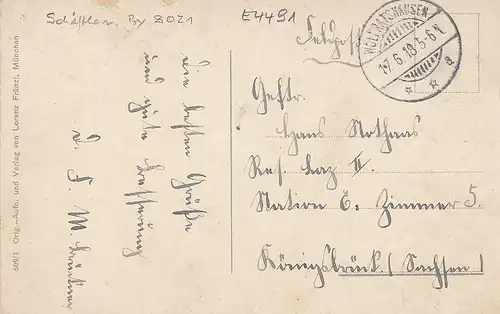 Schäftlarn. By 8021
E4491
Feldpost
WOLFRATSHAUSEN
17.6.18.5-6N.
Gefr.
Hans Nothaas
Res. Laz. II.
Station E. Zimmer 5.
Königsbrück (Sachsen)
Die besten Grüße
und gute Besserung
v. F. M.
809/1 Orig.-Aufn. und Verlag von Lorenz Fränzl, München